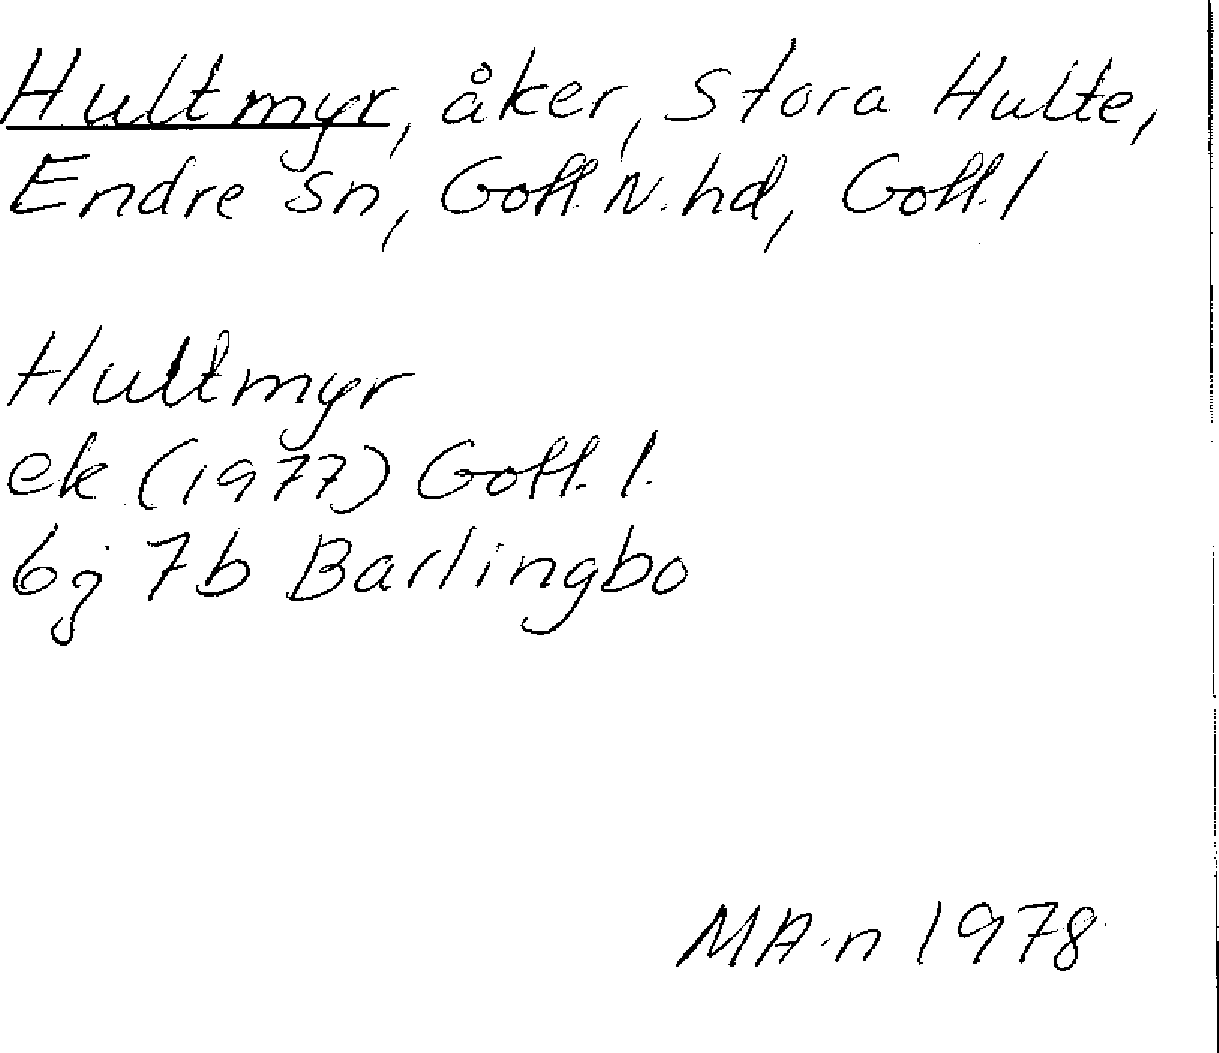 Hultmyr, åker, Stora Hulte,
Endre sn, Gotl. N. hd, Gotl. l
Hultmyr
ek (1977) Gotl. l.
6j 7b Barlingbo
MA-n 1978